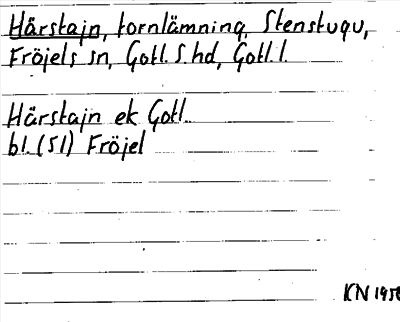 Härstajn, fornlämning, Stenstugu,
Fröjels sn, Gotl. S. hd, Gotl. l.
Härstajn ek Gotl.
bl. (51) Fröjel
KN 1950